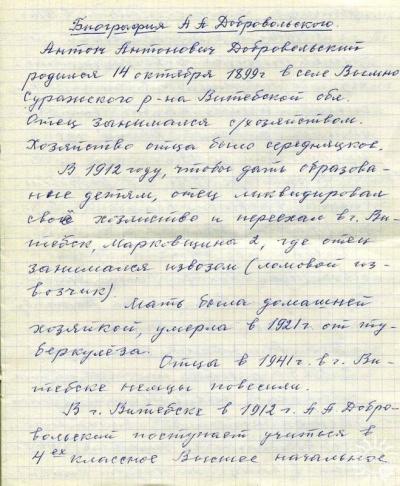 Биография А А Добровольского.
Антон Антонович Добровольский
родился 14 октября 1899г в селе Вымно
Суражского р-на Витебской обл.
Отец занимался с/хозяйством.
Хозяйство отца было середняцкое.
В 1912 году, чтобы дать образова-
ние детям, отец ликвидировал
своё хозяйство и переехал в г. Ви-
тебск, Марковщина 2, где отец
занимался извозом (ломовой из-
возчик).
Мать была домашней
хозяйкой, умерла в 1921г. от ту-
беркулёза.
Отца в 1941г. в г. Ви-
тебске немцы повесили.
В г. Витебске в 1912 г. А А Добро-
вольский поступает учиться в
4ех классное Высшее начальное